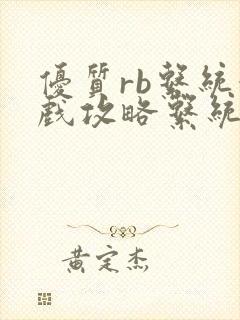 優質rb繫統
戲攻略繫統
黃定杰